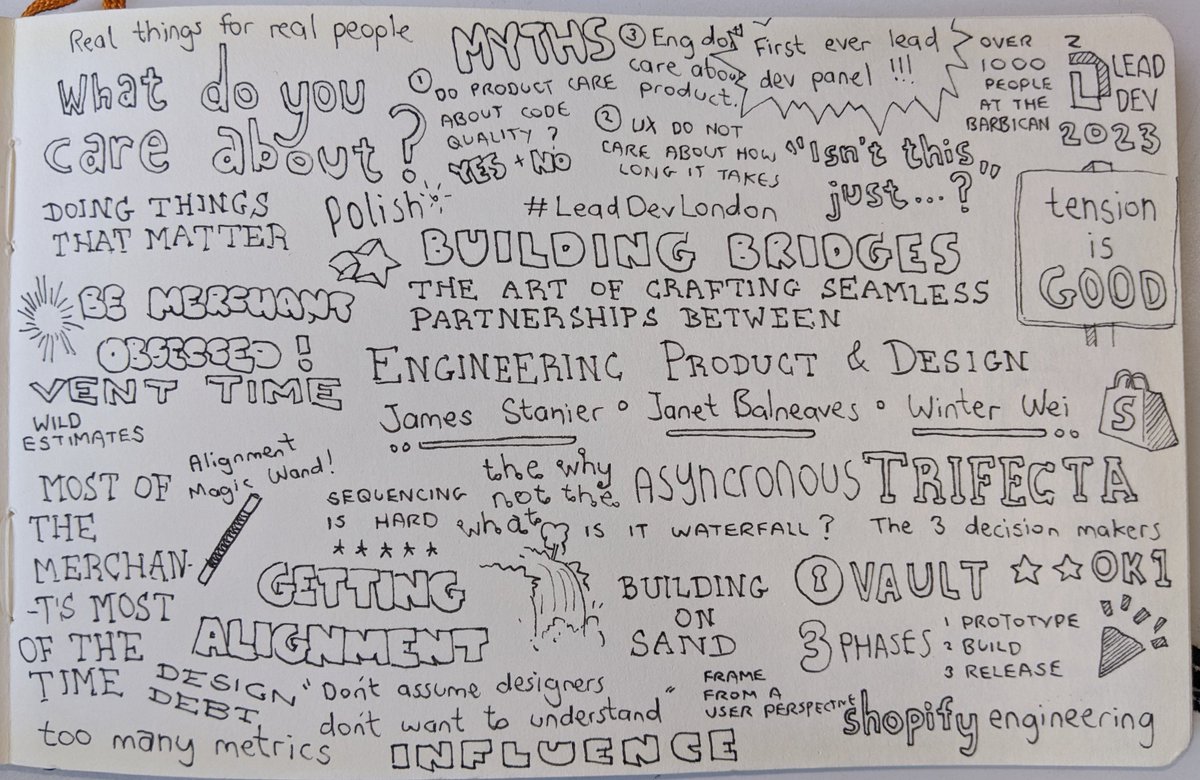 Real things for real people
What do you
care about?
MYTHS
① DO PRODUCT CARE
ABOUT CODE
QUALITY?
YES + NO
③ Eng don't
care about
product.
② UX DO NOT
CARE ABOUT HOW
LONG IT TAKES
First ever lead
dev panel!!!
OVER
1000
PEOPLE
AT THE
BARBICAN
LEAD
DEV
2023
"Isn't this
just...?"
DOING THINGS
THAT MATTER
Polish
#LeadDevLondon
tension
is
GOOD
BUILDING BRIDGES
THE ART OF CRAFTING SEAMLESS
PARTNERSHIPS BETWEEN
ENGINEERING PRODUCT & DESIGN
James Stanier • Janet Balneaves • Winter Wei
S
BE MERCHANT
OBSESSED!
VENT TIME
WILD
ESTIMATES
MOST OF
THE
MERCHAN-
-T'S MOST
OF THE
TIME
Alignment
Magic Wand!
SEQUENCING
IS HARD
the why
not the
what
ASYNCRONOUS TRIFECTA
IS IT WATERFALL?
The 3 decision makers
GETTING
ALIGNMENT
BUILDING
ON
SAND
VAULT
OK1
3 PHASES
1 PROTOTYPE
2 BUILD
3 RELEASE
DESIGN
DEBT
"Don't assume designers
don't want to understand"
FRAME
FROM A
USER PERSPECTIVE
shopify engineering
too many metrics
INFLUENCE